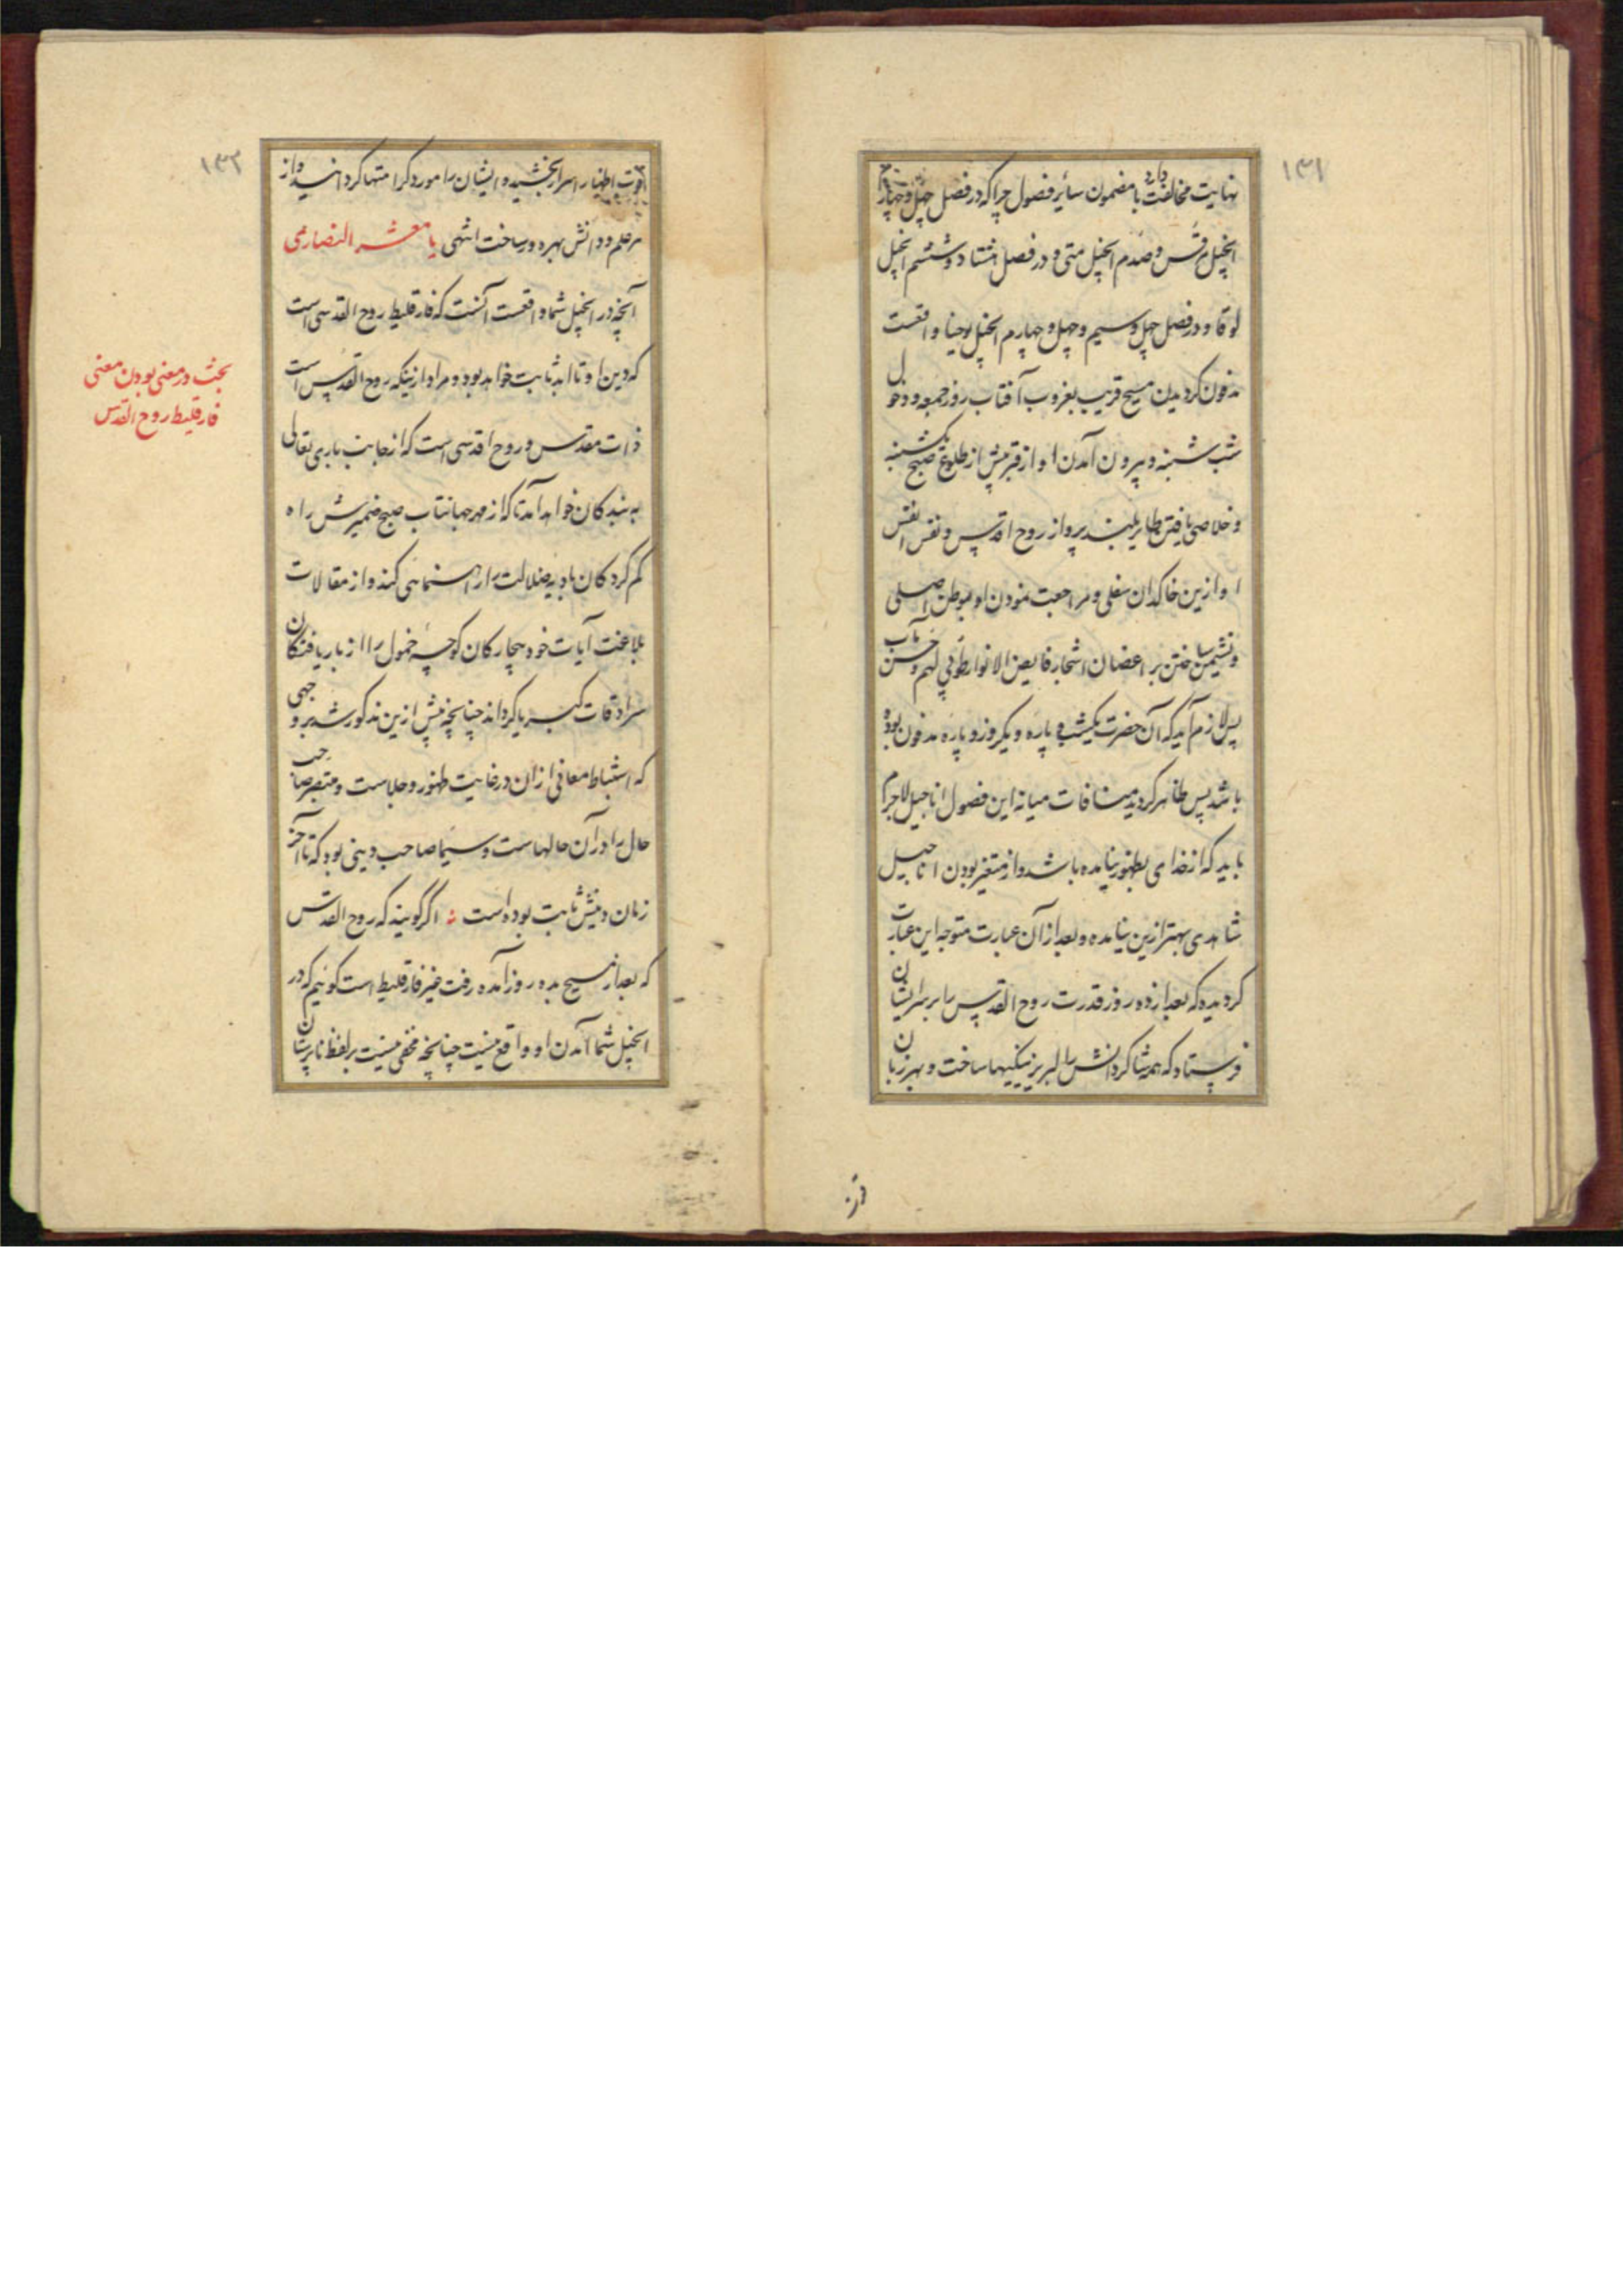 ۱۳۱
نهایت مخالفت دارد با مضمون سائر فصول چرا که در فصل چهل و چهارم
انجیل مرقس و صدم انجیل متی و در فصل هشتاد و ششم انجیل
لوقا و در فصل چهل و سیم و چهل و چهارم انجیل یوحنا واقعست
مدفون کردیدن مسیح قریب بغروب آفتاب روز جمعه و دخول
شب شنبه و بیرون آمدن او از قبر پیش از طلوع صبح یکشنبه
و خلاصی یافتن طایر بلند پرواز روح اقدس و نفس انفس
او ازین خاکدان سفلی و مراجعت نمودن او بوطن اصلی
و نشیمن ساختن بر اغصان اشجار فایض الانوار طوبی لهم و حسن مآب
پس لازم آید که آن حضرت یکشب و پاره و یکروز و پاره مدفون بوده
باشد پس ظاهر کردید منافات میانه این فصول اناجیل لاجرم
باید که از خدای بظهور نیامده باشد و از متغیر بودن اناجیل
شاهدی بهتر ازین نیامده و بعد از آن عبارت متوجه این عبارت
کردیده که بعد از ده روز قدرت روح القدس را بر سر ایشان
فرستاد که همه شاکردانش را لبریز نیکیها ساخت و بهر زبان
۱۳۲
قوت اظهار اسرار بخشیده و ایشان را مورد کرامتها کردانید و از
هر علم و دانش بهره ور ساخت انتهی یا معشر النصاری
آنچه در انجیل شما واقعست آنست که فارقلیط روح القدسی است
که دین او تا ابد ثابت خواهد بود و مراد ازینکه روح القدس است
ذات مقدس و روح اقدسی است که از جانب باری تعالی
به بندکان خواهد آمد تا که از مهر جهانتاب صبح ضمیرش راه
کم کردکان بادیه ضلالت را راهنمائی کند و از مقالات
بلاغت آیات خود بیچارکان کوچه خمول را از باریافتکان
سرادقات کبریا کرداند چنانچه پیش ازین مذکور شد بر وجهی
که استنباط معانی ازان در غایت ظهور و جلاست و متبصر صاحب
حال را در آن حالهاست و سیما صاحب دینی بود که تا آخر
زمان دینش ثابت بوده است اگر گویند که روح القدس
که بعد از مسیح بده روز آمده رفت غیر فارقلیط است گوئیم که در
انجیل شما آمدن او واقع نیست چنانچه مخفی نیست بر لفظ ناپرستان
بحث در معنی بودن معنی
فارقلیط روح القدس